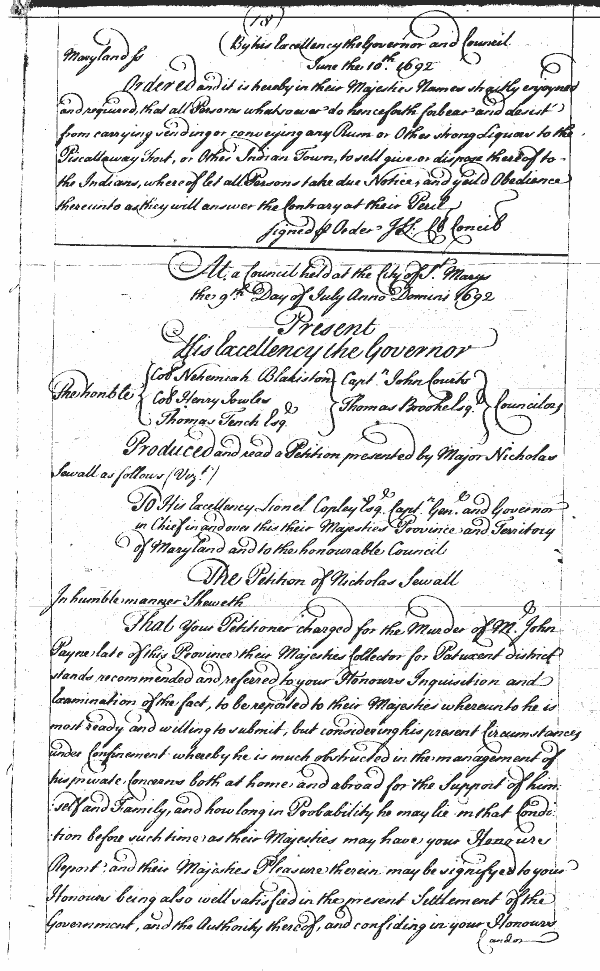 (18)
By his Excellency the Governor and Council
Maryland ss
June the 10th. 1692
Ordered and it is hereby in their Majesties Names strictly enjoyned
and required, that all Persons whatsoever do henceforth forbear and desist
from carrying sending or conveying any Rum or Other strong Liquors to the
Piscattaway Fort, or Other Indian Town, to sell give or dispose thereof to
the Indians, whereof let all Persons take due Notice, and yeild Obedience
thereunto as they will answer the Contrary at their Peril
Signed Order Cl Concil
At a Council held at the City of St. Marys
the 9th. Day of July Anno Domini 1692
Present
His Excellency the Governor
The honble
Col Nehemiah Blakiston
Col Henry Jowles
Thomas Tench Esqr.
Captn John Courts
Thomas Brooke Esqr.
Councilors
Produced and read a Petition presented by Major Nicholas
Sewall as follows (Vizt.)
To His Excellency Lionel Copley Esqr. Captn. Genl. and Governor
in Chief in and over this their Majesties Province and Territory
of Maryland and to the honourable Council
The Petition of Nicholas Sewall
In humble manner Sheweth
That your Petitioner charged for the Murder of Mr. John
Payne late of this Province their Majesties Collector for Patuxent district
stands recommended and referred to your Honours Inquisition and
Examination of the fact, to be reported to their Majesties whereunto he is
most ready and willing to submit, but considering his present Circumstances
under Confinement whereby he is much obstructed in the management of
his private Concerns both at home and abroad for the Support of him
self and Family, and how long in Probability he may lie in that Condi
tion before such time as their Majesties may have your Honours
Report and their Majesties Pleasure therein may be signifyed to your
Honours being also well satisfied in the present Settlement of the
Government, and the Authority thereof, and confiding in your Honours
Candor